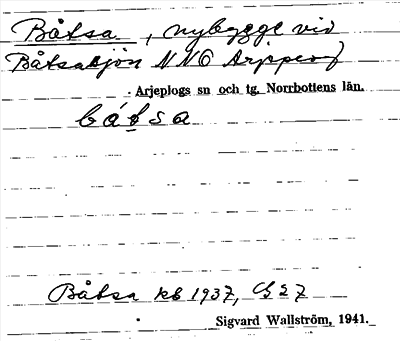 Båtsa, nybygge vid
Båtsasjön NNO Arjeplog
Arjeplogs sn och tg. Norrbottens län.
bátsa
Båtsa kb 1937, G 27
Sigvard Wallström, 1941.